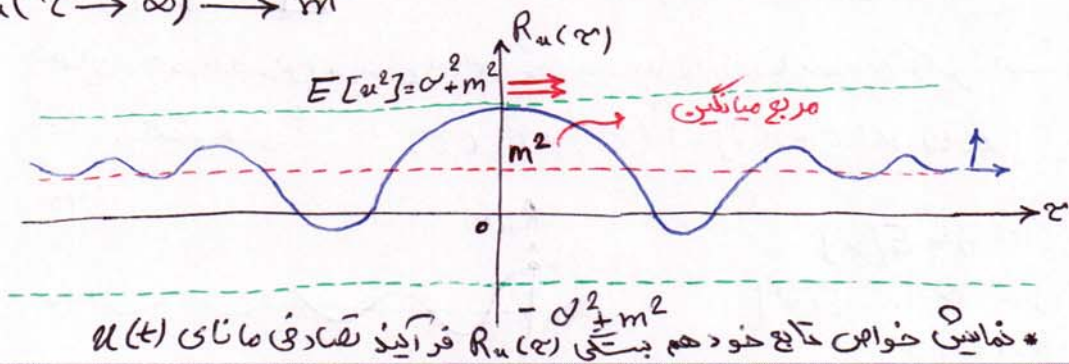 (τ → ∞) → m
R_u(τ)
E[u²]=σ²+m²
مربع میانگین
m²
τ
0
-σ²+m²
* نمایش خواص تابع خود هم بستگی R_u(τ) فرآیند تصادفی مانای u(t)